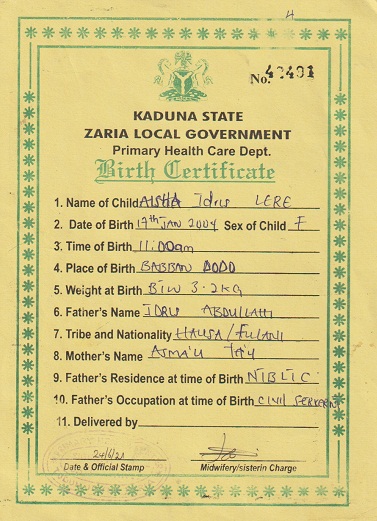 No. 42491
KADUNA STATE
ZARIA LOCAL GOVERNMENT
Primary Health Care Dept.
Birth Certificate
1. Name of Child AISHA Idris LERE
2. Date of Birth 17th JAN 2004 Sex of Child F
3. Time of Birth 11:00am
4. Place of Birth BABBAN DODO
5. Weight at Birth BTW 3.2kg
6. Father's Name IDRIS ABDULLAHI
7. Tribe and Nationality HAUSA/FULANI
8. Mother's Name ASMA'U
9. Father's Residence at time of Birth
10. Father's Occupation at time of Birth CIVIL
11. Delivered by
24/6/21
Date & Official Stamp Midwifery/sisterin Charge